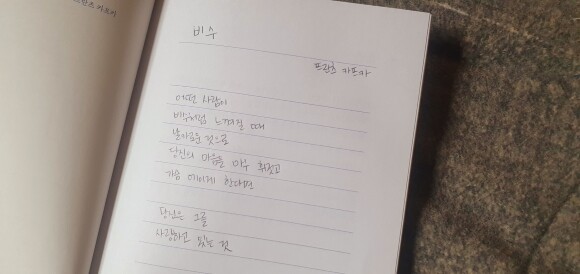 프란츠 카프카
비수
프란츠 카프카
어떤 사람이
비수처럼 느껴질 때
날카로운 것으로
당신의 마음을 마구 휘젓고
가슴 에이게 한다면
당신은 그를
사랑하고 있는 것